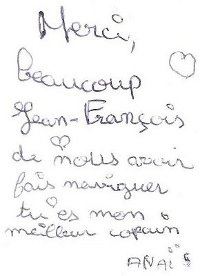 Merci,
beaucoup
Jean-François
de nous avoir
fais naviguer
tu es mon
meilleur copain
ANAÏS